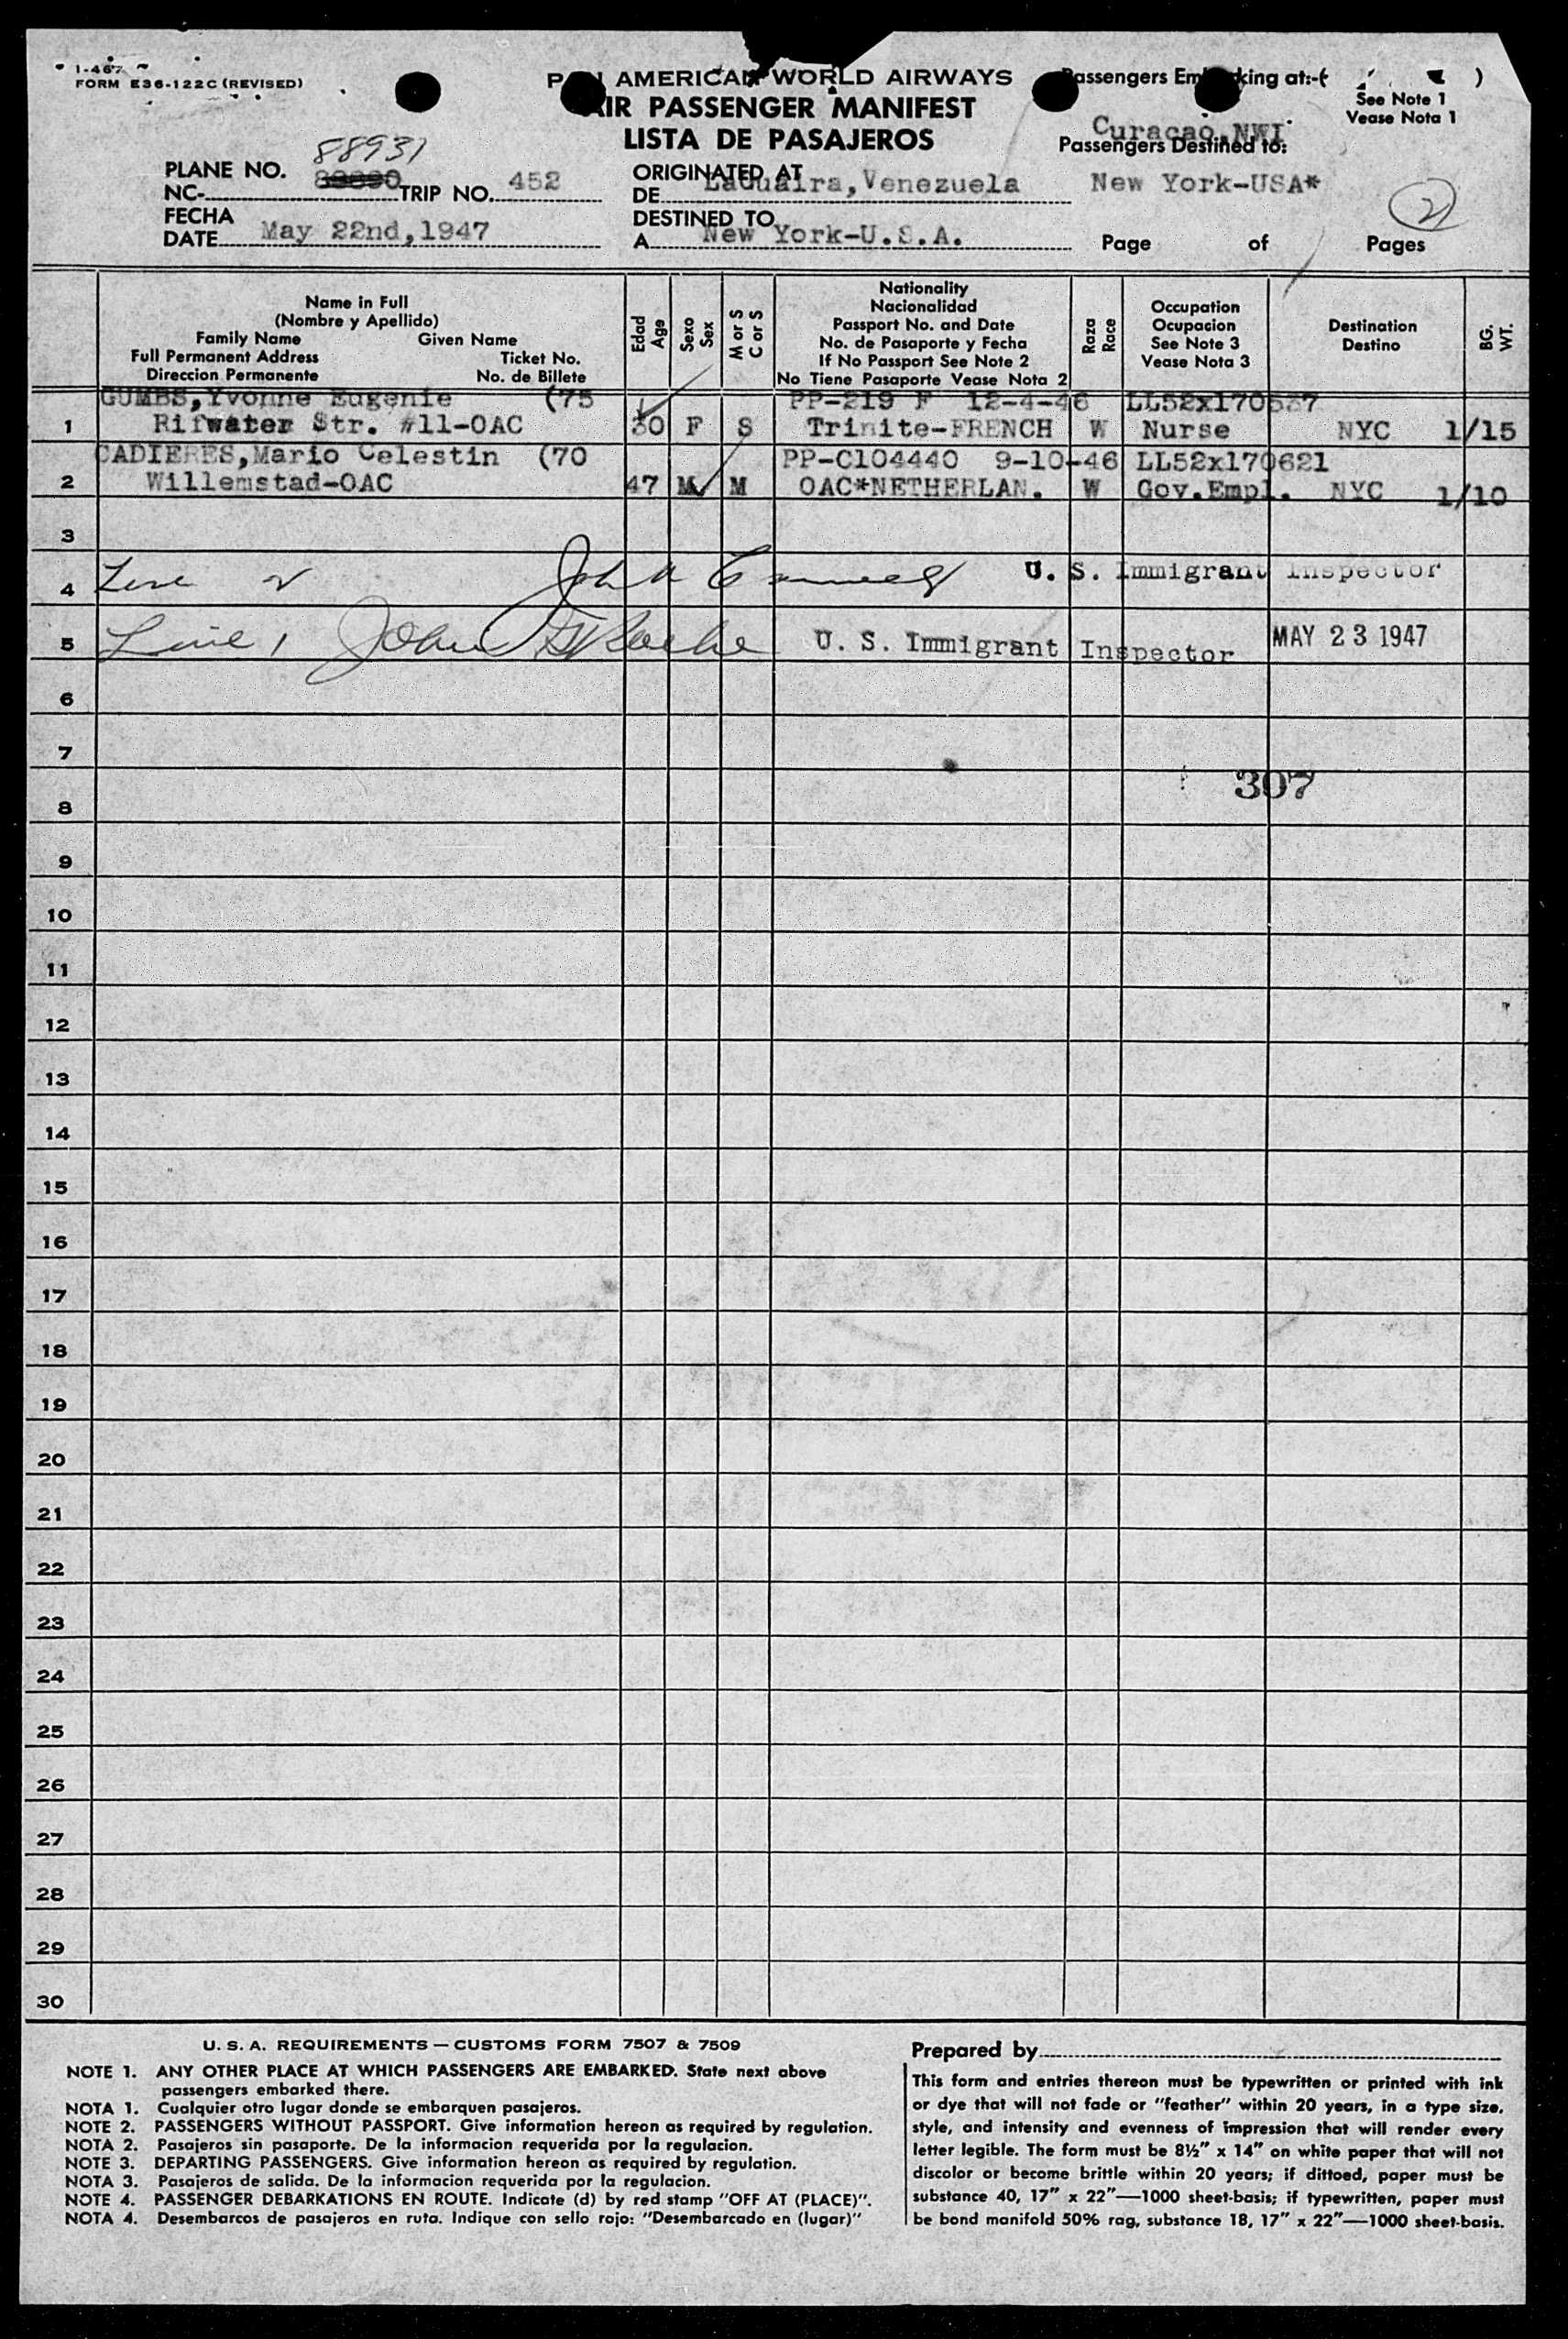 I-467
FORM E36-122C (REVISED)
PAN AMERICAN WORLD AIRWAYS
AIR PASSENGER MANIFEST
LISTA DE PASAJEROS
Passengers Embarking at:-( )
See Note 1
Vease Nota 1
Curacao,NWI
Passengers Destined to:
New York-USA*
88931
PLANE NO.
NC- TRIP NO. 452
FECHA
DATE May 22nd,1947
ORIGINATED AT
DE LaGuaira,Venezuela
DESTINED TO
A New York-U.S.A.
2
Page of Pages
Name in Full
(Nombre y Apellido)
Family Name Given Name
Full Permanent Address Ticket No.
Direccion Permanente No. de Billete
Edad
Age
Sexo
Sex
M or S
C or S
Nationality
Nacionalidad
Passport No. and Date
No. de Pasaporte y Fecha
If No Passport See Note 2
No Tiene Pasaporte Vease Nota 2
Raza
Race
Occupation
Ocupacion
See Note 3
Vease Nota 3
Destination
Destino
BG.
WT.
GUMBS,Yvonne Eugenie (75 PP-219 F 12-4-46 LL52x170537
1 Rifwater Str. #11-OAC 30 F S Trinite-FRENCH W Nurse NYC 1/15
CADIERES,Mario Celestin (70 PP-C104440 9-10-46 LL52x170621
2 Willemstad-OAC 47 M M OAC*NETHERLAN. W Gov.Empl. NYC 1/10
3
4 Line 2 John U. S. Immigrant Inspector
5 Line 1 John U. S. Immigrant Inspector MAY 23 1947
6
7
307
8
9
10
11
12
13
14
15
16
17
18
19
20
21
22
23
24
25
26
27
28
29
30
U. S. A. REQUIREMENTS — CUSTOMS FORM 7507 & 7509
NOTE 1. ANY OTHER PLACE AT WHICH PASSENGERS ARE EMBARKED. State next above
passengers embarked there.
NOTA 1. Cualquier otro lugar donde se embarquen pasajeros.
NOTE 2. PASSENGERS WITHOUT PASSPORT. Give information hereon as required by regulation.
NOTA 2. Pasajeros sin pasaporte. De la informacion requerida por la regulacion.
NOTE 3. DEPARTING PASSENGERS. Give information hereon as required by regulation.
NOTA 3. Pasajeros de salida. De la informacion requerida por la regulacion.
NOTE 4. PASSENGER DEBARKATIONS EN ROUTE. Indicate (d) by red stamp "OFF AT (PLACE)".
NOTA 4. Desembarcos de pasajeros en ruta. Indique con sello rojo: "Desembarcado en (lugar)"
Prepared by
This form and entries thereon must be typewritten or printed with ink
or dye that will not fade or "feather" within 20 years, in a type size,
style, and intensity and evenness of impression that will render every
letter legible. The form must be 8½" x 14" on white paper that will not
discolor or become brittle within 20 years; if dittoed, paper must be
substance 40, 17" x 22"—1000 sheet-basis; if typewritten, paper must
be bond manifold 50% rag, substance 18, 17" x 22"—1000 sheet-basis.